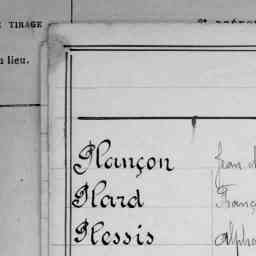 TIRAGE
lieu.
Plançon Jean
Plard Franç
Plessis Alpho